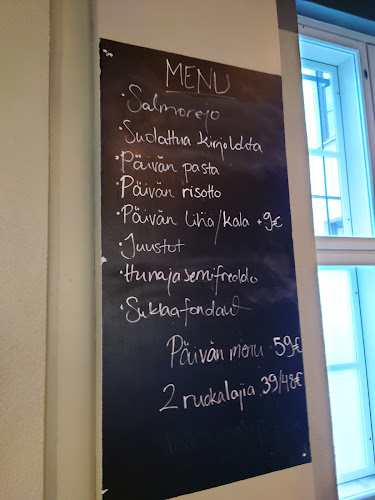 MENU
· Salmorejo
· Sudattua kirjolohta
· Päivän pasta
· Päivän risotto
· Päivän liha/kala +9€
· Juustot
· Hunajasemifreddo
· Suklaafondant
Päivän menu 59€
2 ruokalajia 39/48€